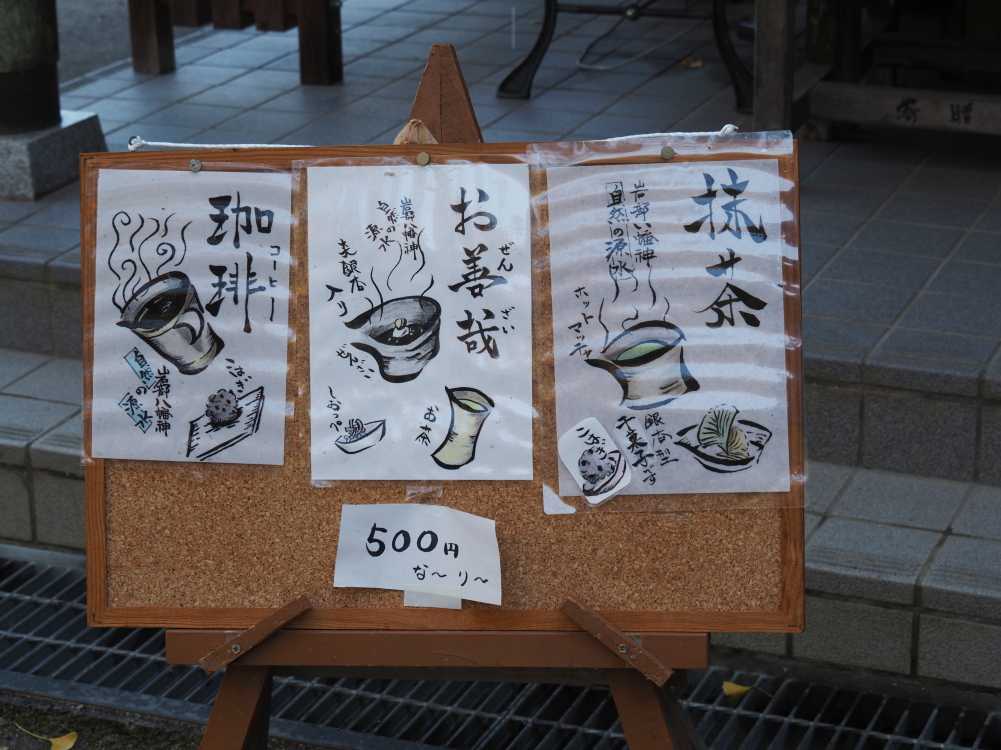 抹茶
岩部八幡神
自然の源水
ホット
マッチャ
銀杏型
干菓子です
こはぎ
お善哉
ぜんざい
岩部八幡神
自然の源水
銀杏
入り
ぜんざい
しおっぺ
お茶
珈琲
コーヒー
岩部八幡神
自然の源水
こはぎ
500円
な〜り〜
寄贈